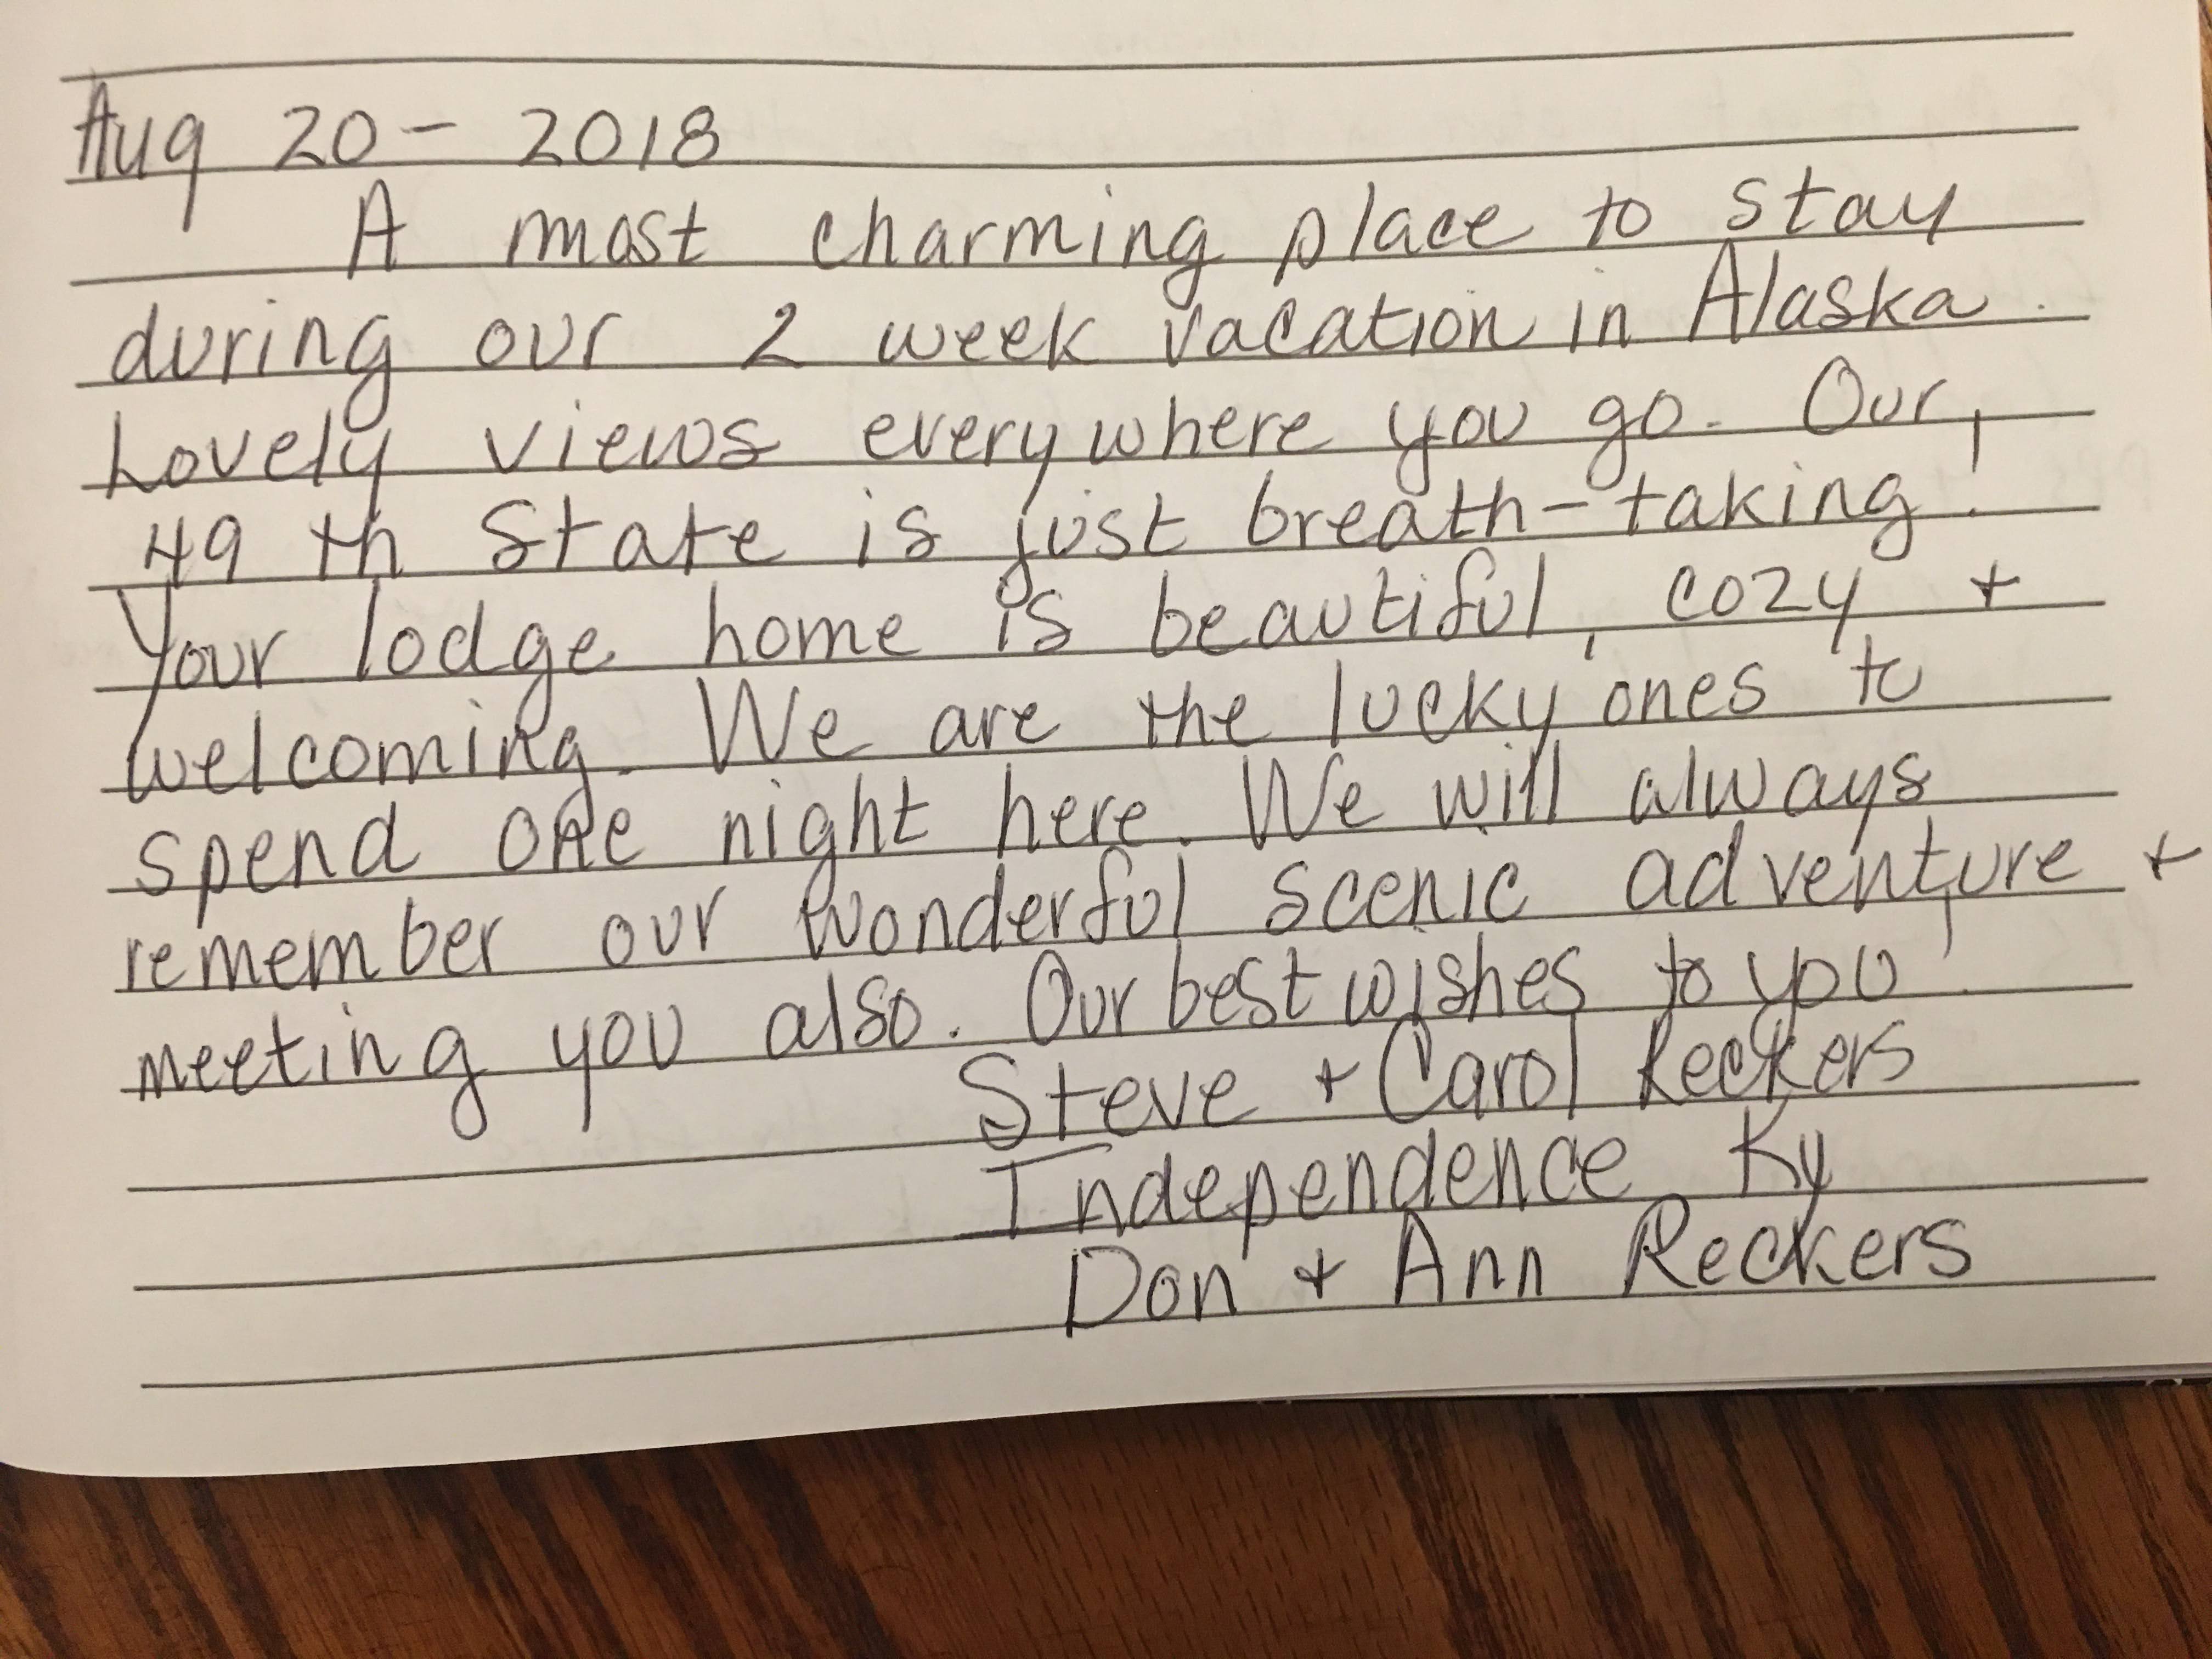 Aug 20 - 2018
A most charming place to stay
during our 2 week vacation in Alaska.
Lovely views everywhere you go. Our
49 th State is just breath-taking!
Your lodge home is beautiful, cozy +
welcoming. We are the lucky ones to
spend one night here. We will always
remember our wonderful scenic adventure +
meeting you also. Our best wishes to you!
Steve + Carol Reckers
Independence Ky
Don + Ann Reckers